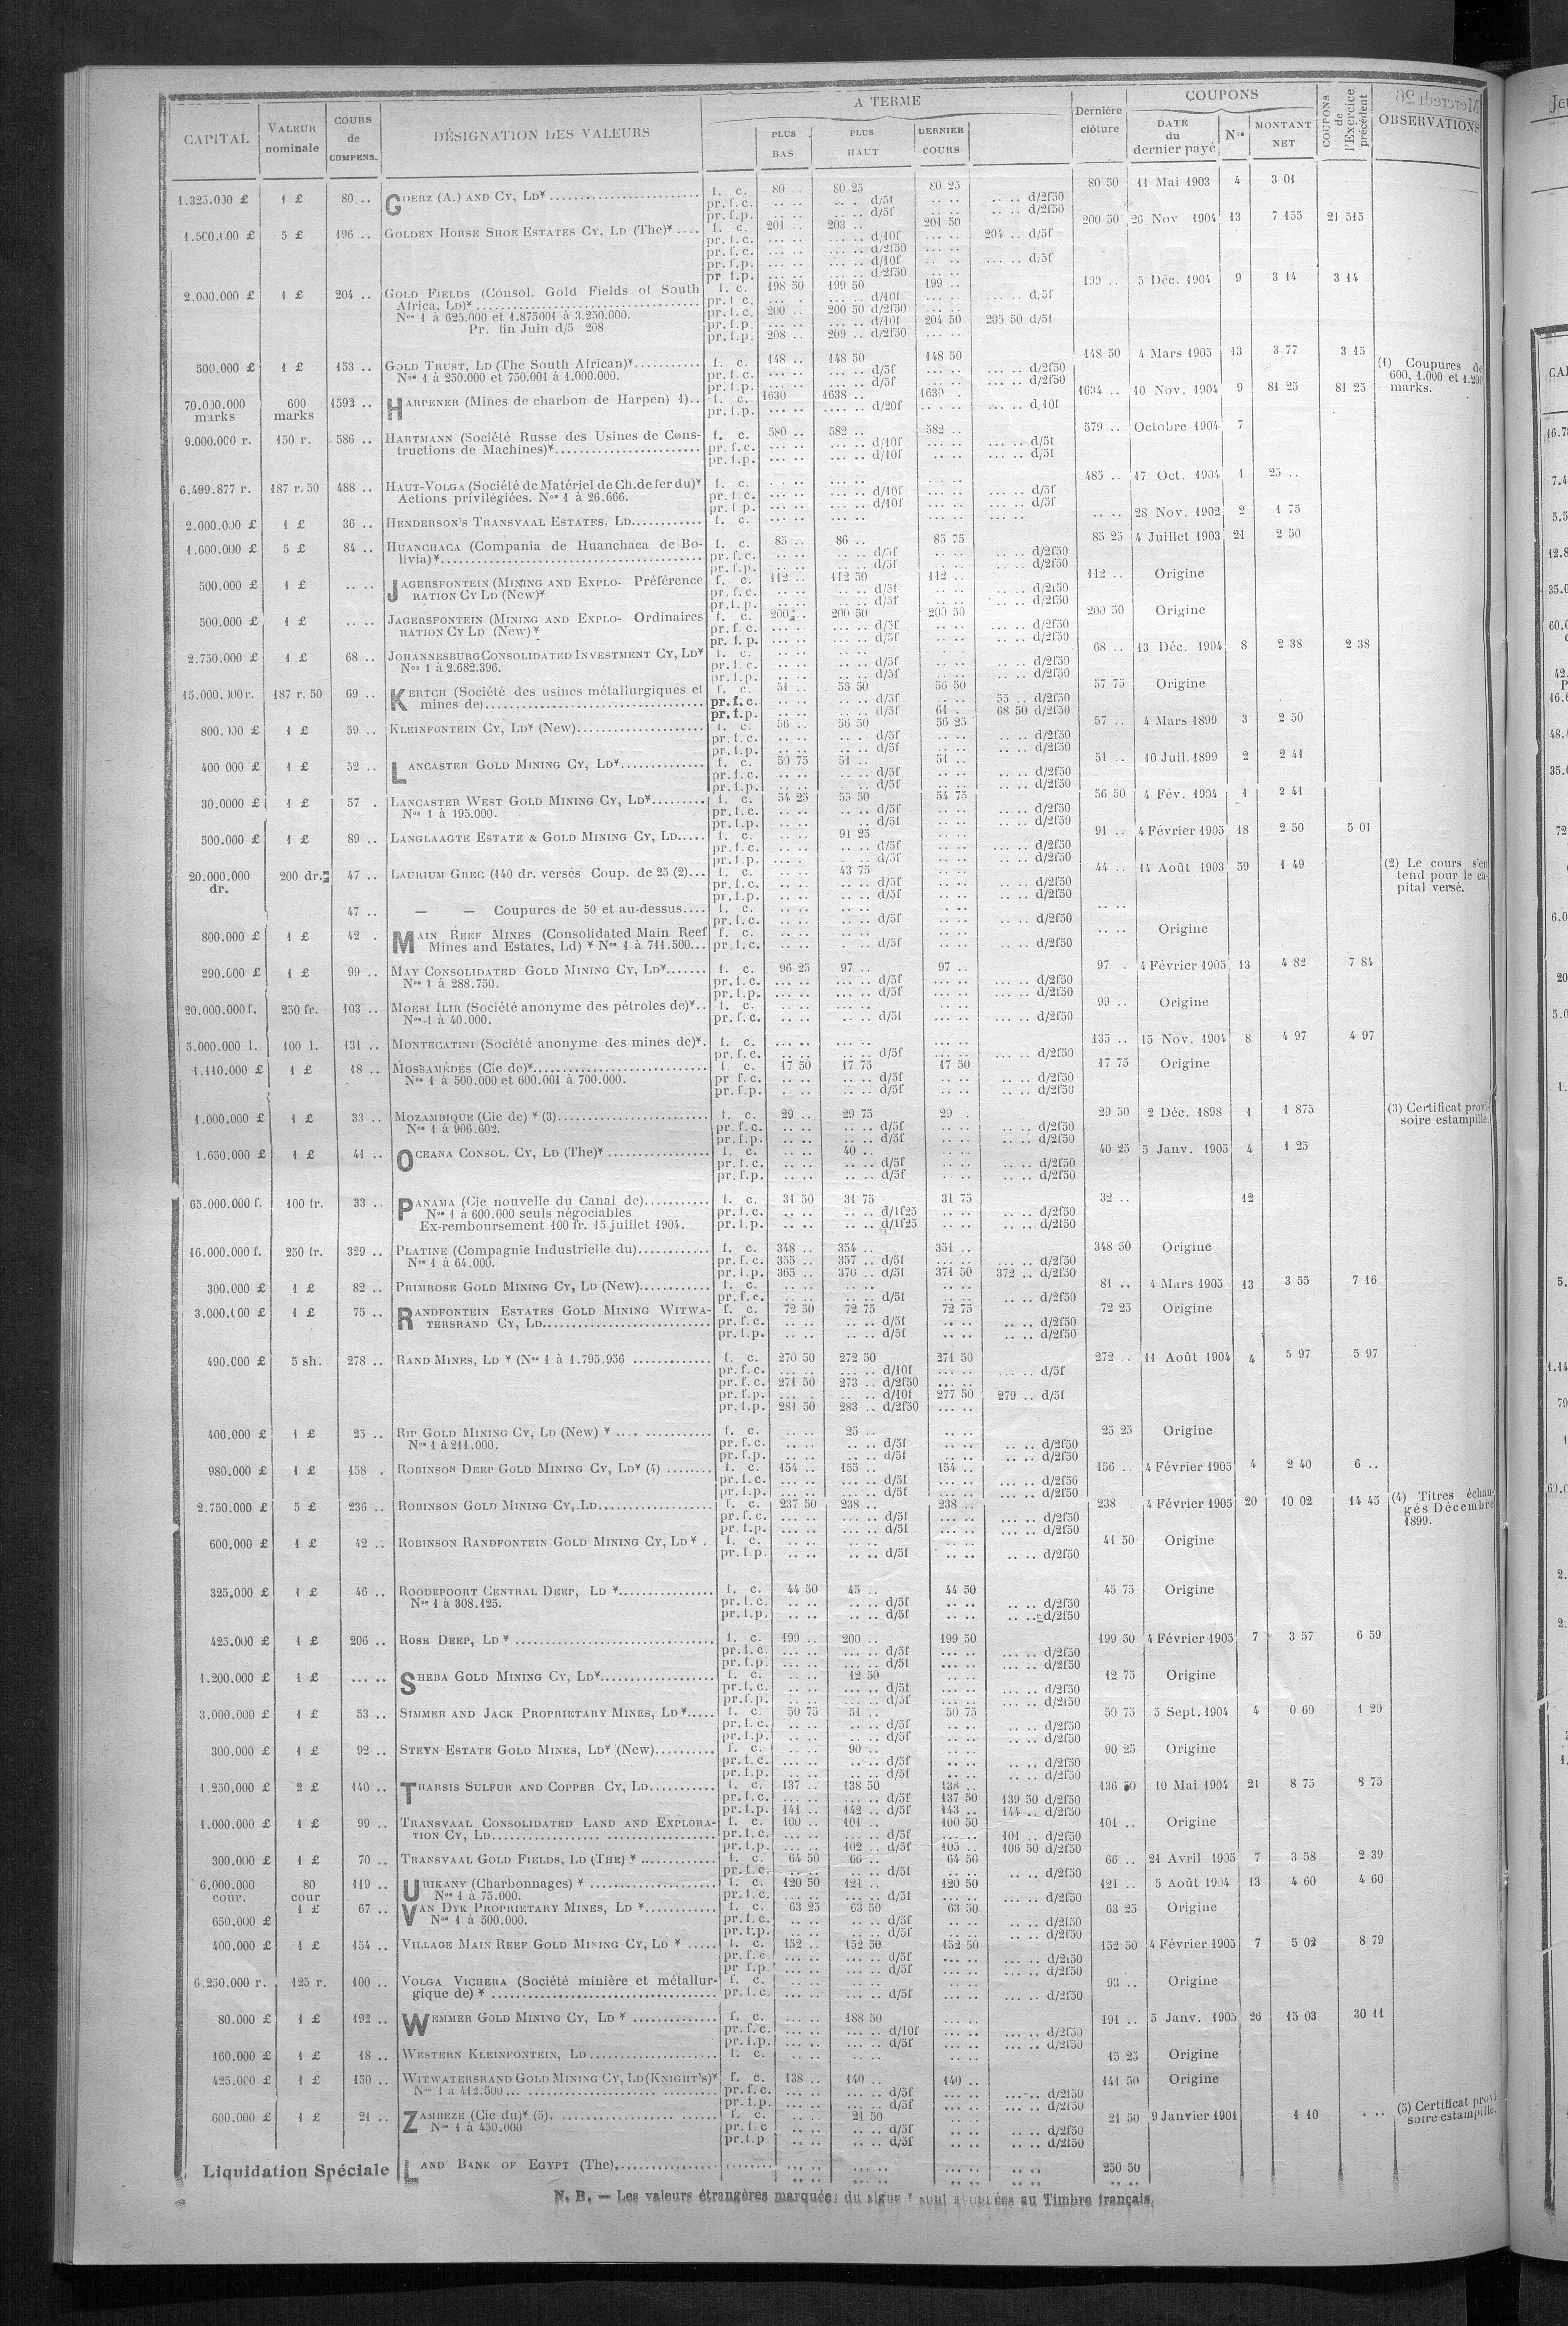 CAPITAL | VALEUR nominale | COURS de COMPENS. | DÉSIGNATION DES VALEURS | A TERME | PLUS BAS | PLUS HAUT | DERNIER COURS | Dernière clôture | COUPONS | DATE du dernier payé | Nos | MONTANT NET | COUPONS de l'Exercice précédent | OBSERVATIONS
1.325.000 £ | 1 £ | 80 .. | GOERZ (A.) AND CY, LD* | f. c. | 80 .. | 80 25 | 80 25 | 80 50 | 11 Mai 1903 | 4 | 3 01
1.500.000 £ | 5 £ | 196 .. | GOLDEN HORSE SHOE ESTATES CY, LD (The)* | f. c. | 201 .. | 203 .. | 201 50 | 200 50 | 26 Nov 1904 | 13 | 7 155 | 21 515
pr. f. c. | d/10f | 204 .. d/5f
2.000.000 £ | 1 £ | 204 .. | GOLD FIELDS (Consol. Gold Fields of South | f. c. | 198 50 | 199 50 | 199 .. | 199 .. | 5 Déc. 1904 | 9 | 3 14 | 3 14
Africa, LD)* | pr. f. c. | d/10f | d/5f
Nos 1 à 625.000 et 1.875001 à 3.250.000. | pr. f. c. | 200 .. | 200 50 d/2f50
Pr. fin Juin d/5 208 | pr. f. p. | d/10f | 204 50 | 205 50 d/5f
pr. f. p. | 208 .. | 209 .. d/2f50
500.000 £ | 1 £ | 153 .. | GOLD TRUST, LD (The South African)* | f. c. | 148 .. | 148 50 | 148 50 | 148 50 | 4 Mars 1905 | 13 | 3 77 | 3 15 | (1) Coupures de
Nos 1 à 250.000 et 750.001 à 1.000.000. | pr. f. c. | d/5f | d/2f50 | 600, 1.000 et 1.200
70.000.000 marks | 600 marks | 1592 .. | HARPENER (Mines de charbon de Harpen) 1) | f. c. | 1630 | 1638 .. | 1630 . | 1634 .. | 10 Nov. 1904 | 9 | 81 25 | 81 25 | marks.
pr. f. p. | d/20f | d/10f
9.000.000 r. | 150 r. | 586 .. | HARTMANN (Société Russe des Usines de Cons- | f. c. | 580 .. | 582 .. | 582 .. | 579 .. | Octobre 1904 | 7
tructions de Machines)* | pr. f. c. | d/10f | d/5f
6.499.877 r. | 187 r. 50 | 488 .. | HAUT-VOLGA (Société de Matériel de Ch. de fer du)* | f. c. | 485 .. | 17 Oct. 1904 | 1 | 25 ..
Actions privilégiées. Nos 1 à 26.666. | pr. f. c. | d/10f | d/5f
2.000.000 £ | 1 £ | 36 .. | HENDERSON'S TRANSVAAL ESTATES, LD | f. c. | 28 Nov. 1902 | 2 | 1 75
1.600.000 £ | 5 £ | 84 .. | HUANCHACA (Compania de Huanchaca de Bo- | f. c. | 85 .. | 86 .. | 85 75 | 85 25 | 4 Juillet 1903 | 21 | 2 50
livia)* | pr. f. c. | d/5f | d/2f50
500.000 £ | 1 £ | JAGERSFONTEIN (MINING AND EXPLO- Préférence | f. c. | 112 .. | 112 50 | 112 .. | 112 .. | Origine
RATION CY LD (New)* | pr. f. c. | d/5f | d/2f50
500.000 £ | 1 £ | JAGERSFONTEIN (MINING AND EXPLO- Ordinaires | f. c. | 200 .. | 200 50 | 200 50 | 200 50 | Origine
RATION CY LD (New)* | pr. f. c. | d/5f | d/2f50
2.750.000 £ | 1 £ | 68 .. | JOHANNESBURG CONSOLIDATED INVESTMENT CY, LD* | f. c. | 68 .. | 13 Déc. 1904 | 8 | 2 38 | 2 38
Nos 1 à 2.682.396. | pr. f. c. | d/5f | d/2f50
15.000.000 r. | 187 r. 50 | 69 .. | KERTCH (Société des usines métallurgiques et | f. c. | 51 .. | 56 50 | 57 75 | Origine
mines de) | pr. f. c. | d/5f | 55 .. d/2f50
pr. f. p. | d/5f | 61 . | 68 50 d/2f50
800.000 £ | 1 £ | 59 .. | KLEINFONTEIN CY, LD* (New) | f. c. | 56 .. | 56 50 | 56 25 | 57 .. | 4 Mars 1899 | 3 | 2 50
400 000 £ | 1 £ | 52 .. | LANCASTER GOLD MINING CY, LD* | f. c. | 50 75 | 51 .. | 51 .. | 51 .. | 10 Juil. 1899 | 2 | 2 41
30.0000 £ | 1 £ | 57 . | LANCASTER WEST GOLD MINING CY, LD* | f. c. | 54 25 | 55 50 | 54 75 | 56 50 | 4 Fév. 1904 | 1 | 2 41
Nos 1 à 195.000. | pr. f. c. | d/5f | d/2f50
500.000 £ | 1 £ | 89 .. | LANGLAAGTE ESTATE & GOLD MINING CY, LD | f. c. | 91 25 | 91 .. | 4 Février 1905 | 18 | 2 50 | 5 01
20.000.000 dr. | 200 dr. | 47 .. | LAURIUM GREC (140 dr. versés Coup. de 25 (2) | f. c. | 43 75 | 44 .. | 14 Août 1903 | 59 | 1 49 | (2) Le cours s'en
tend pour le ca-
pital versé.
47 .. | — — Coupures de 50 et au-dessus | f. c.
800.000 £ | 1 £ | 42 . | MAIN REEF MINES (Consolidated Main Reef | f. c. | Origine
Mines and Estates, Ld) * Nos 1 à 711.500 | pr. f. c. | d/5f | d/2f50
290.000 £ | 1 £ | 99 .. | MAY CONSOLIDATED GOLD MINING CY, LD* | f. c. | 96 25 | 97 .. | 97 .. | 97 . | 4 Février 1905 | 13 | 4 82 | 7 84
Nos 1 à 288.750. | pr. f. c. | d/5f | d/2f50
20.000.000 f. | 250 fr. | 103 .. | MOESI ILIR (Société anonyme des pétroles de)* | f. c. | 99 .. | Origine
Nos 1 à 40.000. | pr. f. c. | d/5f | d/2f50
5.000.000 l. | 100 l. | 131 .. | MONTECATINI (Société anonyme des mines de)* | f. c. | 135 .. | 15 Nov. 1904 | 8 | 4 97 | 4 97
1.110.000 £ | 1 £ | 18 .. | MOSSAMÉDÈS (Cie de)* | f. c. | 17 50 | 17 75 | 17 50 | 17 75 | Origine
Nos 1 à 500.000 et 600.001 à 700.000. | pr. f. c. | d/5f | d/2f50
1.000.000 £ | 1 £ | 33 .. | MOZAMBIQUE (Cie de) * (3) | f. c. | 29 .. | 29 75 | 29 . | 29 50 | 2 Déc. 1898 | 1 | 1 875 | (3) Certificat provi-
Nos 1 à 906.602. | pr. f. c. | d/5f | d/2f50 | soire estampillé.
1.650.000 £ | 1 £ | 41 .. | OCEANA CONSOL. CY, LD (The)* | f. c. | 40 .. | 40 25 | 5 Janv. 1905 | 4 | 1 25
65.000.000 f. | 100 fr. | 33 .. | PANAMA (Cie nouvelle du Canal de) | f. c. | 31 50 | 31 75 | 31 75 | 32 .. | 12
Nos 1 à 600.000 seuls négociables | pr. f. c. | d/1f25 | d/2f50
Ex-remboursement 100 fr. 15 juillet 1904. | pr. f. p. | d/1f25 | d/2f50
16.000.000 f. | 250 fr. | 329 .. | PLATINE (Compagnie Industrielle du) | f. c. | 348 .. | 354 .. | 351 .. | 348 50 | Origine
Nos 1 à 64.000. | pr. f. c. | 355 .. | 357 .. d/5f | d/2f50
pr. f. p. | 365 .. | 370 .. d/5f | 371 50 | 372 .. d/2f50
300.000 £ | 1 £ | 82 .. | PRIMROSE GOLD MINING CY, LD (New) | f. c. | 81 .. | 4 Mars 1905 | 13 | 3 55 | 7 16
3.000.000 £ | 1 £ | 75 .. | RANDFONTEIN ESTATES GOLD MINING WITWA- | f. c. | 72 50 | 72 75 | 72 75 | 72 25 | Origine
TERSRAND CY, LD | pr. f. c. | d/5f | d/2f50
490.000 £ | 5 sh. | 278 .. | RAND MINES, LD * (Nos 1 à 1.795.956 | f. c. | 270 50 | 272 50 | 271 50 | 272 .. | 11 Août 1904 | 4 | 5 97 | 5 97
pr. f. c. | d/10f | d/5f
pr. f. c. | 271 50 | 273 .. d/2f50
pr. f. p. | d/10f | 277 50 | 279 .. d/5f
pr. f. p. | 281 50 | 283 .. d/2f50
400.000 £ | 1 £ | 25 .. | RIP GOLD MINING CY, LD (New) * | f. c. | 25 .. | 25 25 | Origine
Nos 1 à 211.000. | pr. f. c. | d/5f | d/2f50
980.000 £ | 1 £ | 158 . | ROBINSON DEEP GOLD MINING CY, LD* (4) | f. c. | 154 .. | 155 .. | 154 .. | 156 .. | 4 Février 1905 | 4 | 2 40 | 6 ..
2.750.000 £ | 5 £ | 236 .. | ROBINSON GOLD MINING CY, LD | f. c. | 237 50 | 238 .. | 238 .. | 238 . | 4 Février 1905 | 20 | 10 02 | 14 45 | (4) Titres échan-
gés Décembre
1899.
600,000 £ | 1 £ | 42 .. | ROBINSON RANDFONTEIN GOLD MINING CY, LD * | f. c. | 41 50 | Origine
325.000 £ | 1 £ | 46 .. | ROODEPOORT CENTRAL DEEP, LD * | f. c. | 44 50 | 45 .. | 44 50 | 45 75 | Origine
Nos 1 à 308.125. | pr. f. c. | d/5f | d/2f50
425.000 £ | 1 £ | 206 .. | ROSE DEEP, LD * | f. c. | 199 .. | 200 .. | 199 50 | 199 50 | 4 Février 1905 | 7 | 3 57 | 6 59
1.200.000 £ | 1 £ | SHEBA GOLD MINING CY, LD* | f. c. | 12 50 | 12 75 | Origine
3.000.000 £ | 1 £ | 53 .. | SIMMER AND JACK PROPRIETARY MINES, LD* | f. c. | 50 75 | 51 .. | 50 75 | 50 75 | 5 Sept. 1904 | 4 | 0 60 | 1 20
300.000 £ | 1 £ | 92 .. | STEYN ESTATE GOLD MINES, LD* (New) | f. c. | 90 .. | 90 25 | Origine
1.250.000 £ | 2 £ | 140 .. | THARSIS SULFUR AND COPPER CY, LD | f. c. | 137 .. | 138 50 | 138 .. | 136 50 | 10 Mai 1904 | 21 | 8 75 | 8 75
pr. f. c. | d/5f | 137 50 | 139 50 d/2f50
pr. f. p. | 141 .. | 142 .. d/5f | 143 .. | 144 .. d/2f50
1.000.000 £ | 1 £ | 99 .. | TRANSVAAL CONSOLIDATED LAND AND EXPLORA- | f. c. | 100 .. | 101 .. | 100 50 | 101 .. | Origine
TION CY, LD | pr. f. c. | d/5f | 101 .. d/2f50
pr. f. p. | 102 .. d/5f | 105 .. | 106 50 d/2f50
300.000 £ | 1 £ | 70 .. | TRANSVAAL GOLD FIELDS, LD (THE) * | f. c. | 64 50 | 66 .. | 64 50 | 66 .. | 21 Avril 1905 | 7 | 3 58 | 2 39
6.000.000 cour. | 80 cour | 119 .. | URIKANY (Charbonnages) * | f. c. | 120 50 | 121 .. | 120 50 | 121 .. | 5 Août 1904 | 13 | 4 60 | 4 60
Nos 1 à 75.000. | pr. f. c. | d/5f | d/2f50
650.000 £ | 1 £ | 67 .. | VAN DYK PROPRIETARY MINES, LD * | f. c. | 63 25 | 63 50 | 63 50 | 63 25 | Origine
Nos 1 à 500.000. | pr. f. c. | d/5f | d/2f50
400.000 £ | 1 £ | 154 .. | VILLAGE MAIN REEF GOLD MINING CY, LD * | f. c. | 152 .. | 152 50 | 152 50 | 152 50 | 4 Février 1905 | 7 | 5 02 | 8 79
6.250.000 r. | 125 r. | 100 .. | VOLGA VICHERA (Société minière et métallur- | f. c. | 93 .. | Origine
gique de) * | pr. f. c. | d/5f | d/2f50
80.000 £ | 1 £ | 192 .. | WEMMER GOLD MINING CY, LD * | f. c. | 188 50 | 191 .. | 5 Janv. 1905 | 26 | 15 03 | 30 11
160.000 £ | 1 £ | 18 .. | WESTERN KLEINFONTEIN, LD | f. c. | 15 25 | Origine
425.000 £ | 1 £ | 150 .. | WITWATERSRAND GOLD MINING CY, LD (KNIGHT'S)* | f. c. | 138 .. | 140 .. | 140 .. | 141 50 | Origine
Nos 1 à 412.500 | pr. f. c. | d/5f | d/2f50
600.000 £ | 1 £ | 21 .. | ZAMBEZE (Cie du)* (5) | f. c. | 21 50 | 21 50 | 9 Janvier 1901 | 1 10 | (5) Certificat provi-
Nos 1 à 450.000 | pr. f. c. | d/5f | d/2f50 | soire estampillé.
Liquidation Spéciale | LAND BANK OF EGYPT (The) | 250 50
N. B. — Les valeurs étrangères marquées du signe * sont au Timbre français.